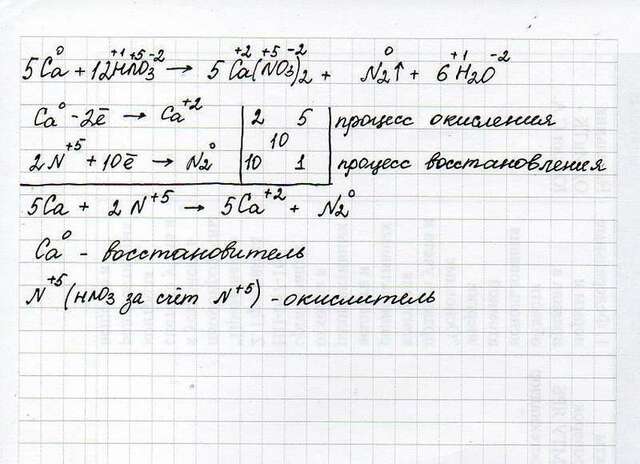 5Ca⁰ + 12H⁺¹N⁺⁵O₃⁻² → 5Ca⁺²(N⁺⁵O₃⁻²)₂ + N₂⁰↑ + 6H₂⁺¹O⁻²
Ca⁰ - 2ē → Ca⁺² | 2 5 | процесс окисления
10
2N⁺⁵ + 10ē → N₂⁰ | 10 1 | процесс восстановления
5Ca + 2N⁺⁵ → 5Ca⁺² + N₂⁰
Ca⁰ - восстановитель
N⁺⁵ (HNO₃ за счёт N⁺⁵) - окислитель